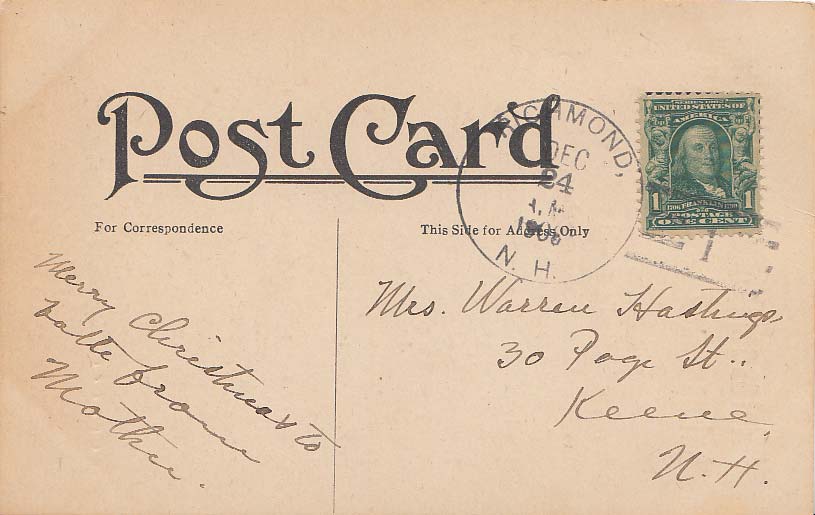 Post Card
For Correspondence
This Side for Address Only
RICHMOND,
DEC
24
N. H.
SERIES 1902
UNITED STATES OF
AMERICA
1
FRANKLIN
1
POSTAGE
ONE CENT
1
Merry Christmas to
from
Mother.
Mrs. Warren Hastings,
30 Page St.,
Keene,
N. H.